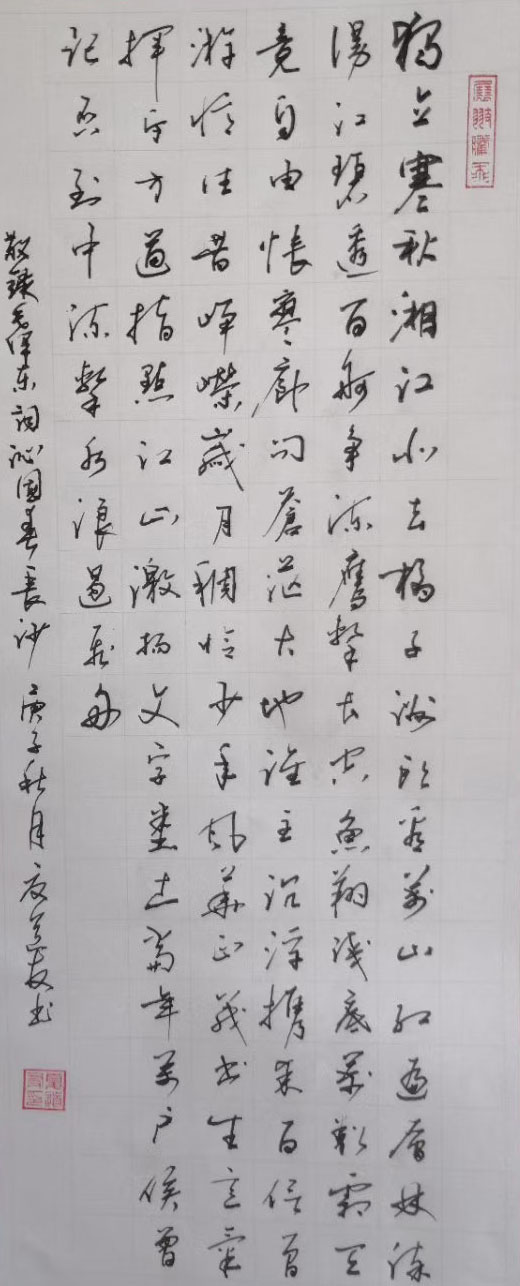 獨立寒秋湘江北去橘子洲头看萬山红遍層林染
漫江碧透百舸争流鹰擊长空魚翔浅底萬類霜天
竟自由悵寥廓问蒼茫大地谁主沉浮携来百侣曾
游忆往昔峥嵘歲月稠恰少年风華正茂书生意氣
揮斥方遒指點江山激扬文字粪土當年萬户侯曾
记否到中流擊水浪遏飛舟
敬錄毛澤东词沁園春長沙 庚子秋月 书